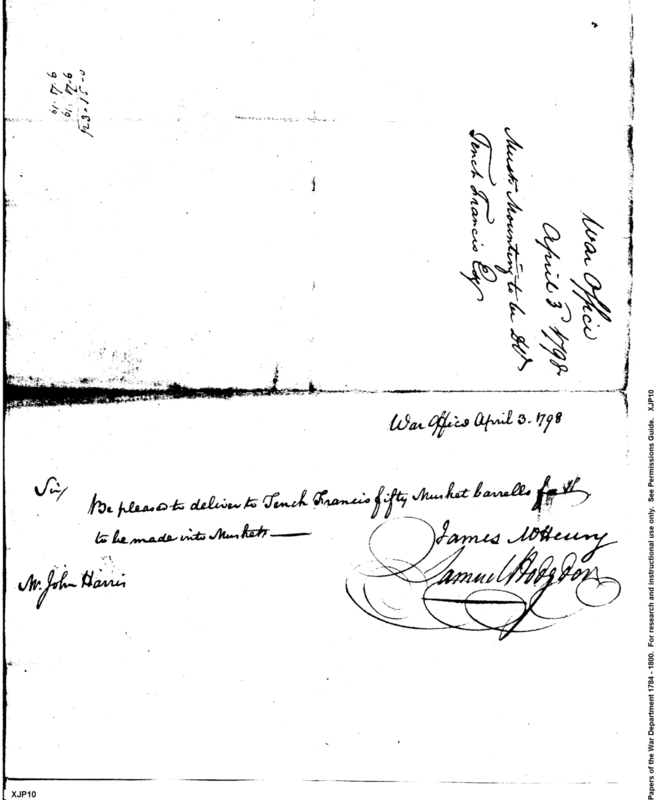 War Office
April 3 1798
Musk Mounting to be DVd
Tench Francis Esq
War Office April 3. 1798
Sir/
Be pleased to deliver to Tench Francis fifty Musket barrells
to be made into Muskets
James McHenry
Samuel Hodgdon
Mr. John Harris
XJP10
Papers of the War Department 1784 - 1800. For research and instructional use only. See Permissions Guide. XJP10